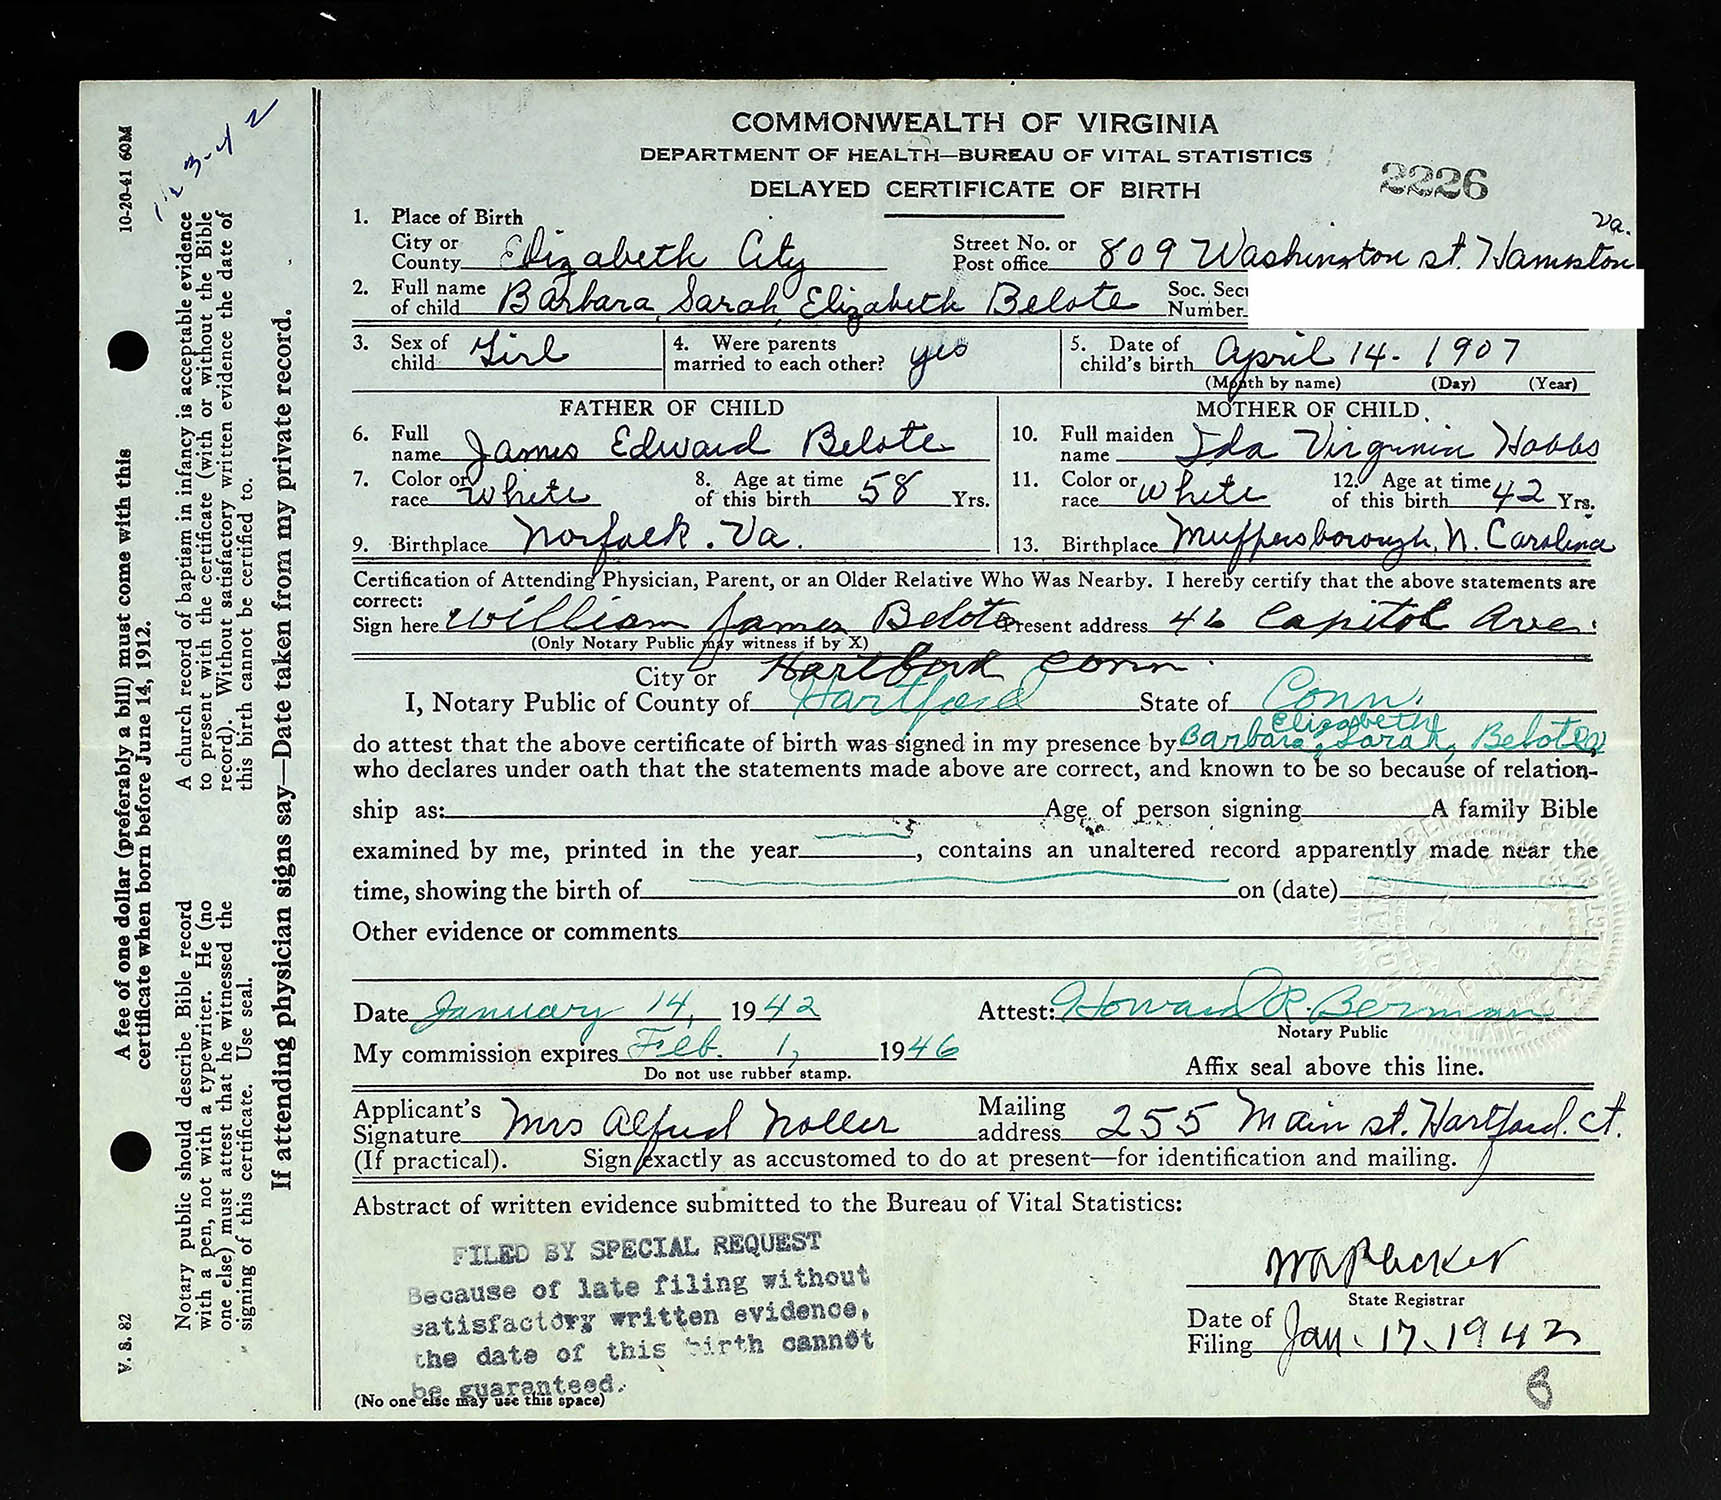 COMMONWEALTH OF VIRGINIA
DEPARTMENT OF HEALTH—BUREAU OF VITAL STATISTICS
2226
DELAYED CERTIFICATE OF BIRTH
1. Place of Birth
City or County Elizabeth City Street No. or Post office 809 Washington st. Hampton Va.
2. Full name of child Barbara, Sarah, Elizabeth Belote Soc. Number
3. Sex of child Girl 4. Were parents married to each other? yes 5. Date of child's birth April 14 - 1907
(Month by name) (Day) (Year)
FATHER OF CHILD MOTHER OF CHILD.
6. Full name James Edward Belote 10. Full maiden name Ida Virginia Hobbs
7. Color or race White 8. Age at time of this birth 58 Yrs. 11. Color or race White 12. Age at time of this birth 42 Yrs.
9. Birthplace Norfolk. Va. 13. Birthplace Muffersborough, N. Carolina
Certification of Attending Physician, Parent, or an Older Relative Who Was Nearby. I hereby certify that the above statements are
correct:
Sign here William James Belote Present address 46 Capitol Ave.
(Only Notary Public may witness if by X)
Hartford Conn.
City or
I, Notary Public of County of Hartford State of Conn.
do attest that the above certificate of birth was signed in my presence by Barbara, Sarah, Elizabeth Belote
who declares under oath that the statements made above are correct, and known to be so because of relation-
ship as: Age of person signing A family Bible
examined by me, printed in the year , contains an unaltered record apparently made near the
time, showing the birth of on (date)
Other evidence or comments
Date January 14, 1942 Attest: Howard R. Berman
Notary Public
My commission expires Feb. 1, 1946
Do not use rubber stamp. Affix seal above this line.
Applicant's Signature Mrs Alfred Noller Mailing address 255 Main st. Hartford. Ct.
(If practical). Sign exactly as accustomed to do at present—for identification and mailing.
Abstract of written evidence submitted to the Bureau of Vital Statistics:
FILED BY SPECIAL REQUEST
Because of late filing without
satisfactory written evidence,
the date of this birth cannot
be guaranteed.
(No one else may use this space)
W A Plecker
State Registrar
Date of Filing Jan. 17. 1942
V. S. 82
10-20-41 60M
A fee of one dollar (preferably a bill) must come with this
certificate when born before June 14, 1912.
Notary public should describe Bible record
with a pen, not with a typewriter. He (no
one else) must attest that he witnessed the
signing of this certificate. Use seal.
A church record of baptism in infancy is acceptable evidence
to present with the certificate (with or without the Bible
record). Without satisfactory written evidence the date of
this birth cannot be certified to.
If attending physician signs say—Date taken from my private record.